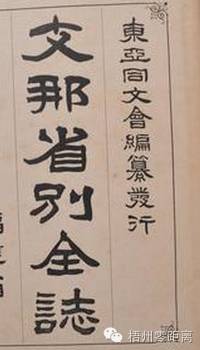 東亞同文會編纂發行
支那省別全誌
梧州零距离